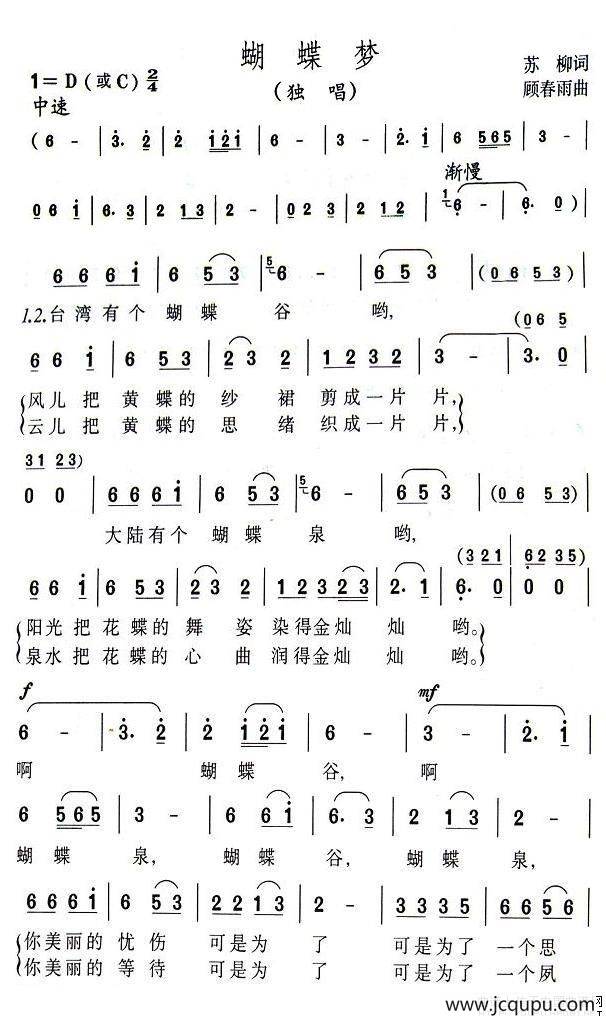 蝴蝶梦
(独唱)
1=D(或C) 2/4
苏柳词
顾春雨曲
中速
(6 - | 3. 2 | 2 1 2 1 | 6 - | 3 - | 2. 1 | 6 5 6 5 | 3 - |
渐慢
0 6 1 | 6. 3 | 2 1 3 | 2 - | 0 2 3 | 0 1 3 5 | 2 1 2 | 6 - | 6. 0)|
6 6 6 1 | 6 5 3 | 6 - | 6 5 3 | (0 6 5 3) |
1.2.台湾有个 蝴蝶 谷 哟,
(0 6 5
6 6 1 | 6 5 3 | 2 3 2 | 1 2 3 2 | 3 - | 3. 0 |
风儿把 黄蝶的 纱裙 剪成一片 片,
云儿把 黄蝶的 思绪 织成一片 片,
3 1 2 3)
0 0 | 6 6 6 1 | 6 5 3 | 6 - | 6 5 3 | (0 6 5 3) |
大陆有个 蝴蝶 泉 哟,
(3 2 1 | 6 2 3 5)
6 6 1 | 6 5 3 | 2 3 2 | 1 2 3 2 3 | 2. 1 | 6. 0 | 0 0 |
阳光把 花蝶的 舞姿 染得金灿 灿 哟。
泉水把 花蝶的 心曲 润得金灿 灿 哟。
f mf
6 - | 3. 2 | 2 1 2 1 | 6 - | 3 - | 2. 1 |
啊 蝴蝶 谷, 啊
6 5 6 5 | 3 - | 6 6 1 | 6. 3 | 2 1 3 | 2 - |
蝴蝶 泉, 蝴蝶 谷, 蝴蝶 泉,
6 6 6 1 | 6 5 3 | 2 2 1 3 | 2 - | 3 3 3 5 | 6 6 5 6 |
你美丽的 忧伤 可是为 了 可是为了 一个思
你美丽的 等待 可是为 了 可是为了 一个夙
www.jcqupu.com